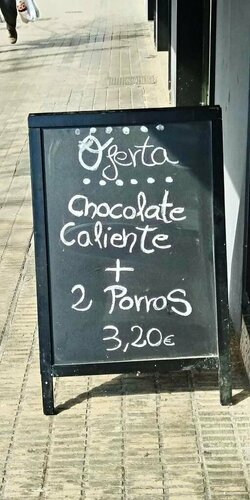 Oferta
Chocolate
Caliente
+
2 Porros
3,20€